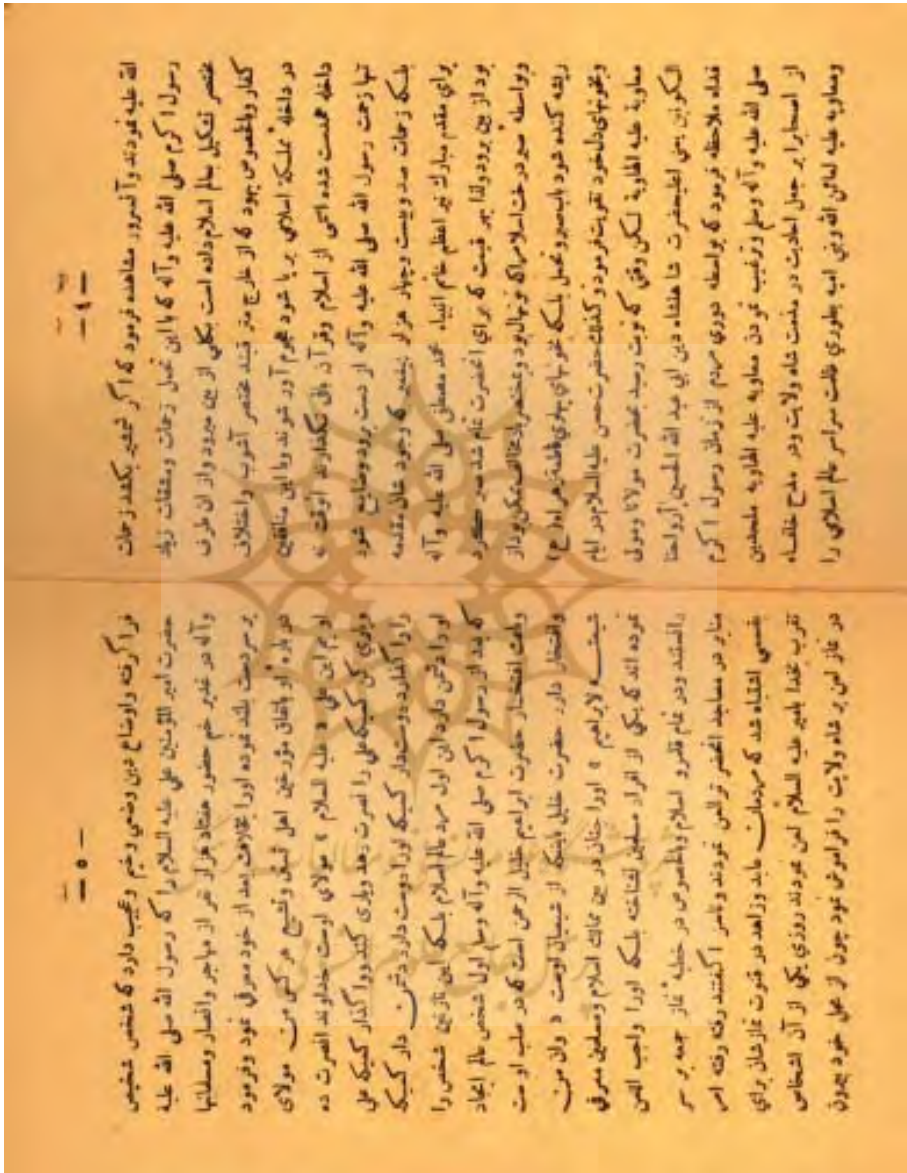 — ٤ —
الله عليه نمودند وآنسرور مشاهده فرمود كه اكر شمشير بكشد زحمات
رسول اكرم صلى الله عليه وآله كه با اين تحمل زحمات ومشقات زياد
مختصر تشكيل عالم اسلام داده است بكلي از بين ميرود واز ان طرف
كفار وبالخصوص يهود كه از خارج منتظر مختصر آشوب واختلاف
در داخله مملكت اسلامي بر پا شود هجوم آور شوند وبا اين منافقين
داخله همدست شده اسمي از اسلام وقرآن باقي نگذارند آنوقت نه
تنها زحمت رسول الله صلى الله عليه وآله از دست برود وضايع شود
بلسكه زحمات صد وبيست وچهار هزار پيغمبر كه وجود شان مقدمه
براي مقدم مبارك نير اعظم خاتم انبياء محمد مصطفى صلى الله عليه وآله
بود از بين برود ولذا بهر قيمت كه براي انحضرت تمام شد صبر كرد
وبواسطه صبر درخت اسلام را كه نونهال بود وبمختصر باد مخالف ممكن بود از
ريشه كنده شود باب صبر وتحمل بلسكه خونهاي پهلوي فاطمة زهراء (ع)
وبخونهاي دل خود تقويت فرمود و كذلك حضرت حسن عليه السلام در ايام
معاوية عليه الهاوية لسكن وقتي كه نوبت رسيد بحضرت مولانا ومولى
السكونين يعني اعليحضرت شاهنشاه دين ابي عبد الله الحسين أرواحنا
فداه ملاحظه فرمود كه بواسطه دوري مردم از زمان رسول اكرم
صلى الله عليه وآله وسلم وترغيب نمودن معاويه عليه الهاويه ملحدين
از اصحابرا بر جعل احاديث در مذمت شاه ولايت ودر مدح خلفاء
ومعاويه عليه لعائن الله وبني اميه بطوري ظلمت سراسر عالم اسلامي را
— ٥ —
فرا گرفته واوضاع دين وضعي وخيم وعجيب دارد كه شخص شخيص
حضرت امير المؤمنين علي عليه السلام را كه رسول الله صلى الله عليه
وآله در غدير خم حضور هفتاد هزار نفر از مهاجر وانصار ومسلمانها
بر سر دست بلند نموده اورا بخلافت بعد از خود معرفي نمود وفرمود
در باره او باتفاق مؤرخين اهل تسنن وتشيع هر كس من مولاى
اويم اين علي « ع » عليه السلام مولاي اوست خداوند انصرت ده
وياري كن كسيكه علي را نصرت دهد وياري كند وواگذار كسيكه علي
را وا گذارد ودوست بدار كسيكه اورا دوست دارد ودشمن دار كسيكه
اورا دشمن دارد اين اول مرد عالم اسلام بلسكه اين نازنين شخص را
كه بعد از رسول اكرم صلى الله عليه وآله وسلم اول شخص عالم ايجاد
وباعث افتخار حضرت ابراهيم خليل الرحمن است كه در صلب اوست
وافتخار دارد حضرت خليل باينكه از شيعيان اوست « وان من
شيعته لابراهيم » اورا چنان در بين ممالك اسلام ومسلمين معرفي
نموده اند كه يكي از افراد مسلمين نشناخته بلسكه اورا واجب اللعن
دانستند ودر تمام قلمرو اسلام وبالخصوص در خطبه نماز جمعه بر سر
منابر در مساجد انحضرترا لعن نمودند وناسزا گفتند رفته رفته امر
بقسمي اشتباه شد كه مردمان عابد وزاهد در قنوت نمازشان براي
تقرب بخدا بامير عليه السلام لعن نمودند روزي يكي از آن اشخاص
در نماز لعن بر شاه ولايت را فراموش نمود چون از محل خود بيرون